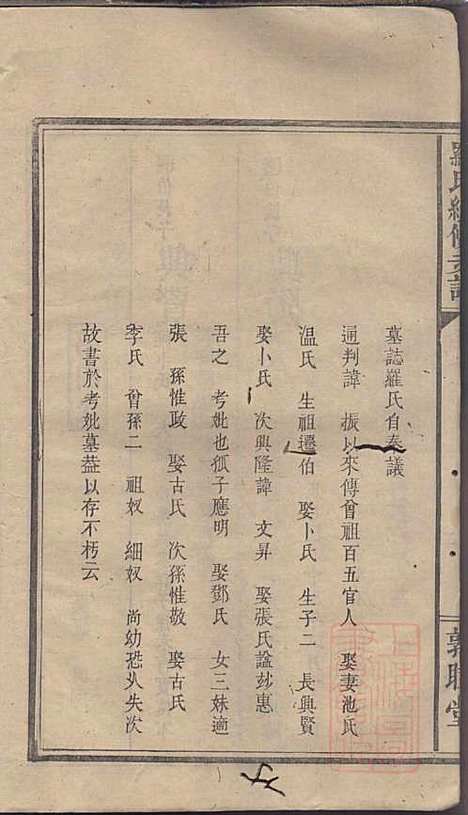 羅氏續修支譜
墓誌羅氏自奏議
通判諱 振以來傳曾祖百五官人 娶妻池氏
温氏 生祖遷伯 娶卜氏 生子二 長興賢
娶卜氏 次興隆諱 文昇 娶張氏諡玅惠
吾之 考妣也孤子應明 娶鄧氏 女三妹適
張 孫惟政 娶古氏 次孫惟敬 娶古氏
李氏 曾孫二 祖奴 細奴 尚幼恐乆失次
故書於考妣墓葢以存不朽云
敦睦堂